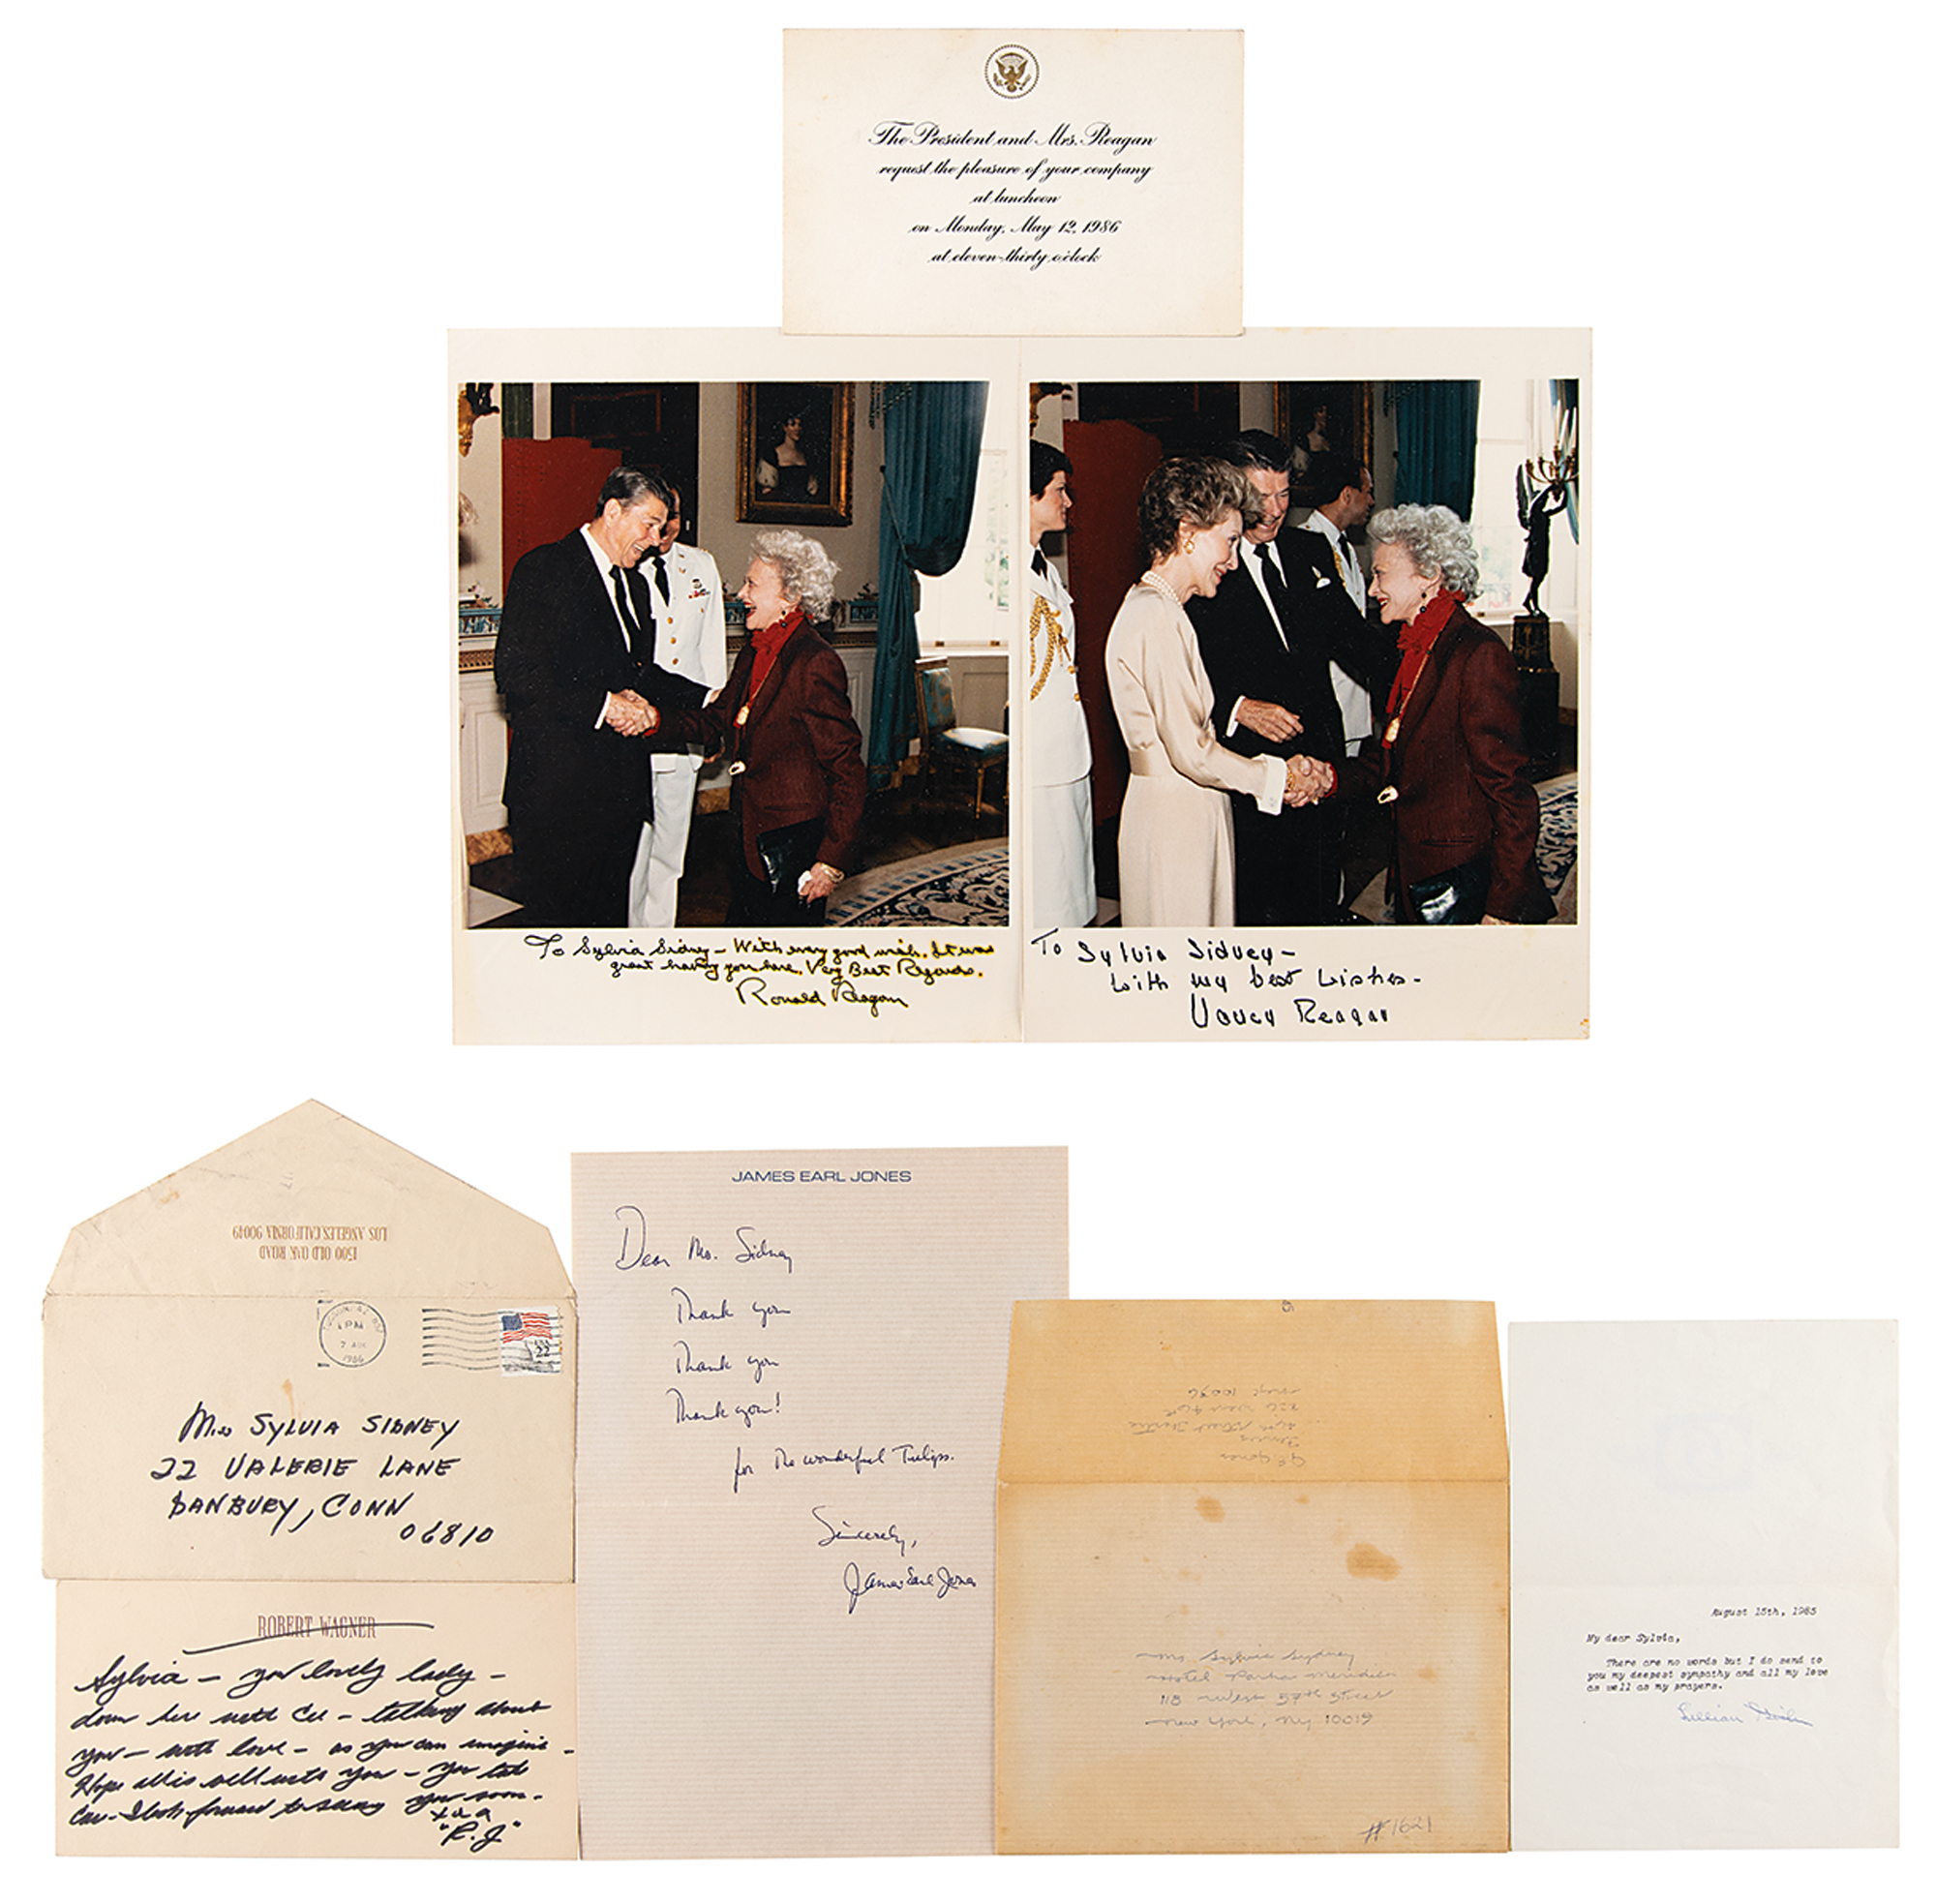 The President and Mrs. Reagan
request the pleasure of your company
at luncheon
on Monday, May 12, 1986
at eleven-thirty o'clock
To Sylvia Sidney – With every good wish. It was
great having you here. Very Best Regards.
Ronald Reagan
To Sylvia Sidney –
With my best wishes –
Nancy Reagan
1500 OLD OAK ROAD
LOS ANGELES, CALIFORNIA 90049
PM
7 AUG
1986
22
Miss SYLVIA SIDNEY
22 VALERIE LANE
DANBURY, CONN
06810
ROBERT WAGNER
Sylvia – you lovely lady –
down here with – talking about
you – with love – as you can imagine –
Hope all is well with you – you take
care – I look forward to seeing you soon –
"R.J"
JAMES EARL JONES
Dear Ms. Sidney
Thank you
Thank you
Thank you!
for the wonderful Tulips.
Sincerely,
James Earl Jones
J.E. Jones
226 West 46th
NYC 10036
Ms Sylvia Sydney
Hotel Parker Meridien
118 West 57th Street
New York, NY 10019
#1621
August 15th, 1985
My dear Sylvia,
There are no words but I do send to
you my deepest sympathy and all my love
as well as my prayers.
Lillian Gish